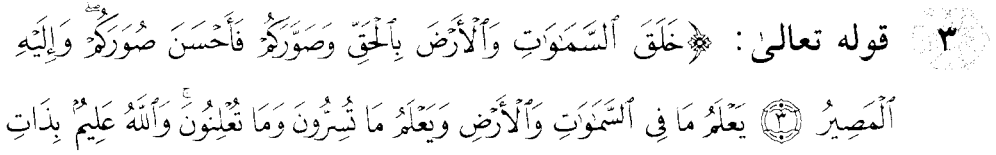 ٣ قوله تعالى: ﴿خَلَقَ ٱلسَّمَٰوَٰتِ وَٱلْأَرْضَ بِٱلْحَقِّ وَصَوَّرَكُمْ فَأَحْسَنَ صُوَرَكُمْۖ وَإِلَيْهِ
ٱلْمَصِيرُ ٣ يَعْلَمُ مَا فِى ٱلسَّمَٰوَٰتِ وَٱلْأَرْضِ وَيَعْلَمُ مَا تُسِرُّونَ وَمَا تُعْلِنُونَۚ وَٱللَّهُ عَلِيمُۢ بِذَاتِ